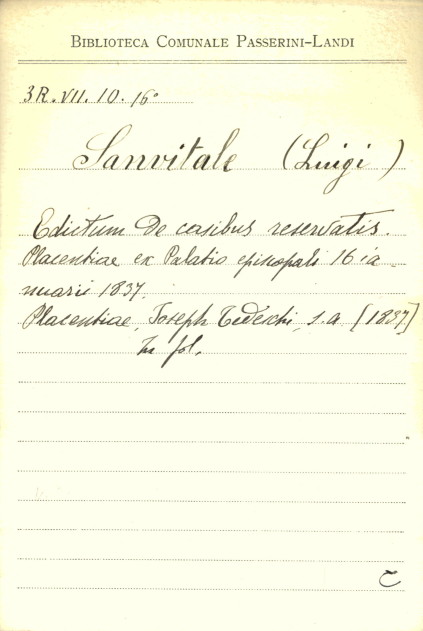 BIBLIOTECA COMUNALE PASSERINI-LANDI
3R.VII.10.16°
Sanvitale (Luigi)
Edictum De casibus reservatis.
Placentiae ex Palatio episcopali 16 ia
nuarii 1837.
Placentiae, Joseph Tedeschi, s.a [1837]
In fol.